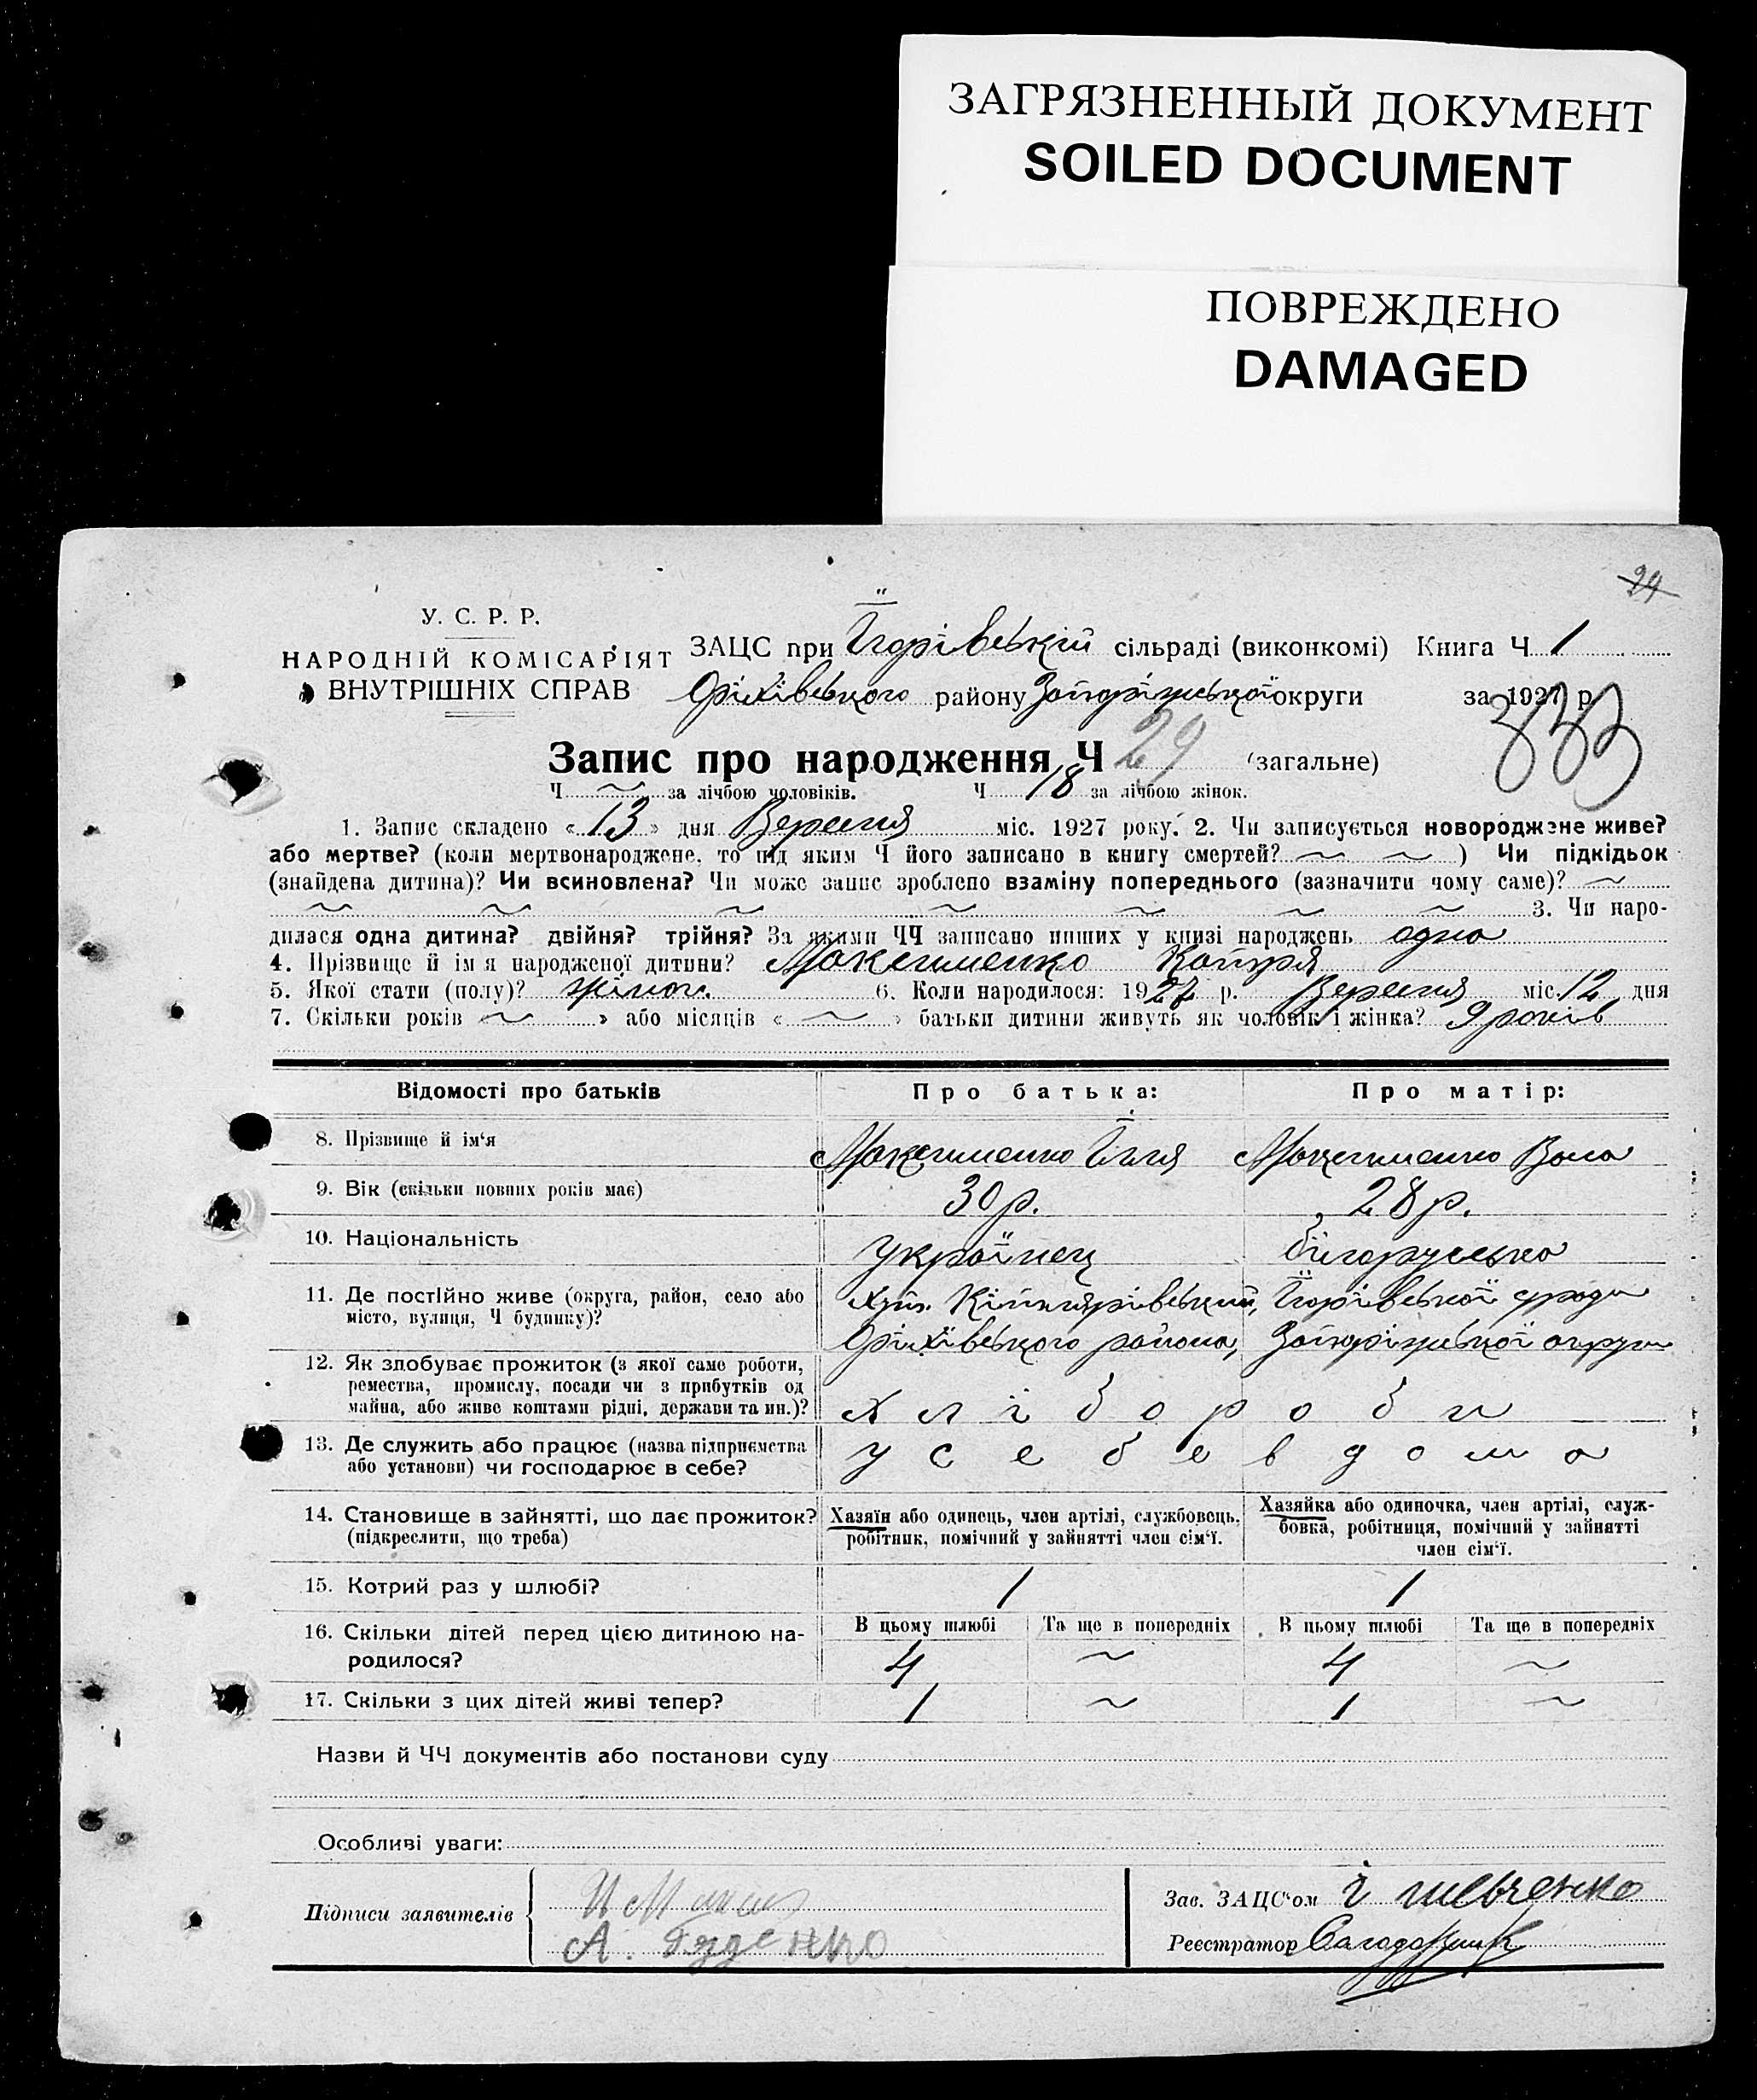 ЗАГРЯЗНЕННЫЙ ДОКУМЕНТ
SOILED DOCUMENT
ПОВРЕЖДЕНО
DAMAGED
24
У. С. Р. Р.
НАРОДНІЙ КОМІСАРІЯТ
ВНУТРІШНІХ СПРАВ
ЗАЦС при Ігорівській сільраді (виконкомі) Книга Ч 1
Оріхівського району Запорізької округи за 1927 р.
333
Запис про народження Ч 29 (загальне)
Ч ~ за лічбою чоловіків. Ч 18 за лічбою жінок.
1. Запис складено « 13 » дня Вересня міс. 1927 року. 2. Чи записується новороджэне живе?
або мертве? (коли мертвонароджене, то під яким Ч його записано в книгу смертей? ~ ~ ) Чи підкідьок
(знайдена дитина)? Чи всиновлена? Чи може запис зроблено взаміну попереднього (зазначити чому саме)? ~
~ ~ ~ ~ ~ ~ ~ 3. Чи наро-
дилася одна дитина? двійня? трійня? За якими ЧЧ записано инших у книзі народжень одна
4. Прізвище й ім я народженої дитини? Максименко
5. Якої стати (полу)? жіноч. 6. Коли народилося: 1927 р. Вересня міс. 12 дня
7. Скільки років « ~ » або місяців « ~ » батьки дитини живуть як чоловік і жінка? 9 років
Відомості про батьків Про батька: Про матір:
8. Прізвище й ім‘я Максименко Ілля Максименко
9. Вік (скільки повних років має) 30 р. 28 р.
10. Національність Українец білоруська
11. Де постійно живе (округа, район, село або
місто, вулиця, Ч будинку)?
Хут. Ігорівської сільради
Оріхівського района, Запорізької округи
12. Як здобуває прожиток (з якої саме роботи,
ремества, промислу, посади чи з прибутків од
майна, або живе коштами рідні, держави та ин.)?
хлібороби
13. Де служить або працює (назва підприємства
або установи) чи господарює в себе?
у себе вдома
14. Становище в зайнятті, що дає прожиток?
(підкреслити, що треба)
Хазяїн або одинець, член артілі, службовець,
робітник, помічний у зайнятті член сім‘ї.
Хазяйка або одиночка, член артілі, служ-
бовка, робітниця, помічний у зайнятті
член сім‘ї.
15. Котрий раз у шлюбі? 1 1
16. Скільки дітей перед цією дитиною на-
родилося?
В цьому шлюбі Та ще в попередніх В цьому шлюбі Та ще в попередніх
4 ~ 4 ~
17. Скільки з цих дітей живі тепер? 1 ~ 1 ~
Назви й ЧЧ документів або постанови суду
Особливі уваги:
Підписи заявителів
Зав. ЗАЦС‘ом І Шевченко
Реєстратор